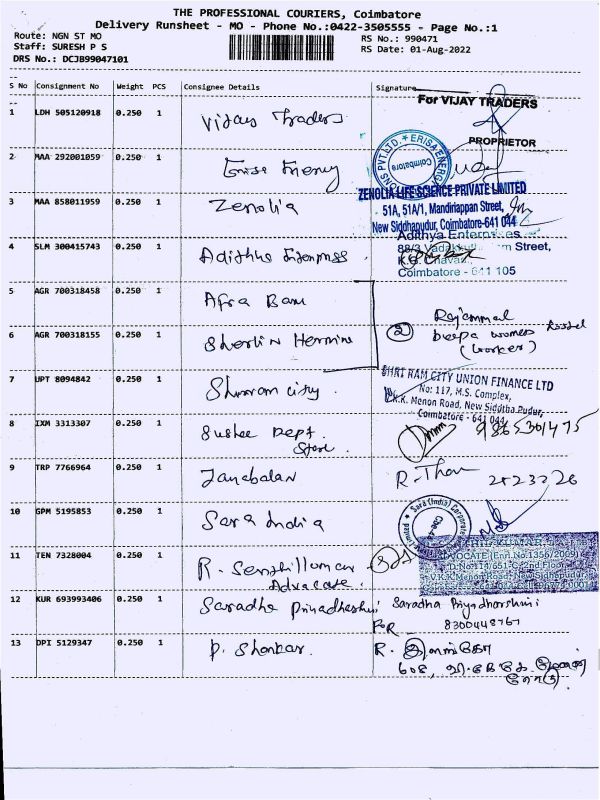 THE PROFESSIONAL COURIERS, Coimbatore
Delivery Runsheet - MO - Phone No.:0422-3505555 - Page No.:1
Route: NGN ST MO
RS No.: 990471
Staff: SURESH P S
RS Date: 01-Aug-2022
DRS No.: DCJB99047101
S No Consignment No Weight PCS Consignee Details Signature
1 LDH 505120918 0.250 1 Vijay Traders
For VIJAY TRADERS
PROPRIETOR
2 MAA 292001059 0.250 1 Erisa Energy
ERISA ENERGY
Coimbatore
3 MAA 858011959 0.250 1 Zenolia
ZENOLIA LIFE SCIENCE PRIVATE LIMITED
51A, 51A/1, Mandiriappan Street,
New Siddhapudur, Coimbatore-641 044
4 SLM 300415743 0.250 1 Adithya Enterprises
Adithya Enterprises
88/3 Street,
Coimbatore - 641 105
5 AGR 700318458 0.250 1 Afra Banu
6 AGR 700318155 0.250 1 Sherlin Hermine
② Rajammal
Deepa womens Hostel
(worker)
7 UPT 8094842 0.250 1 Shriram city
SHRI RAM CITY UNION FINANCE LTD
No: 117, M.S. Complex,
V.K.K. Menon Road, New Siddha Pudur,
Coimbatore - 641 044
8 IXM 3313307 0.250 1 Sushee Dept.
Store
9865301475
9 TRP 7766964 0.250 1 Janabalan
R. Than
10 GPM 5195853 0.250 1 Sara India
Sara (India) Corporate
11 TEN 7328004 0.250 1 R. Senthilkumar
Advocate
ADVOCATE (Enrl.No:1356/2009)
D.No:114/651-C, 2nd Floor
V.K.K.Menon Road, New Sidhapudur
12 KUR 693993406 0.250 1 Saradha Priyadharshini
Saradha Priyadharshini
8300448767
13 DPI 5129347 0.250 1 P. Shankar.
R. இளங்கோ